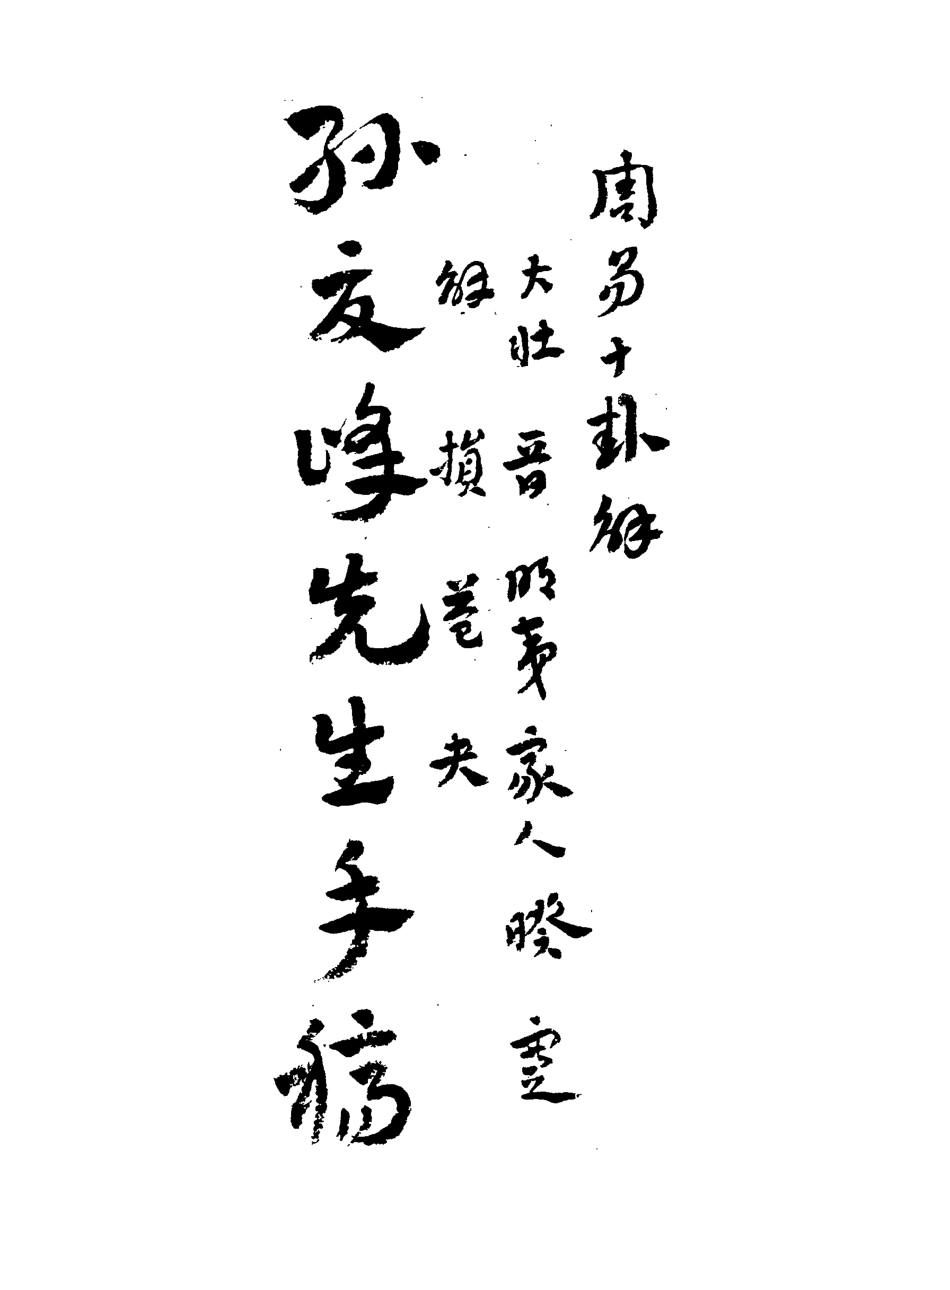 周易十卦解
大壮 晋 明夷 家人 暌 蹇
解 損 益 夬
孙友峰先生手稿